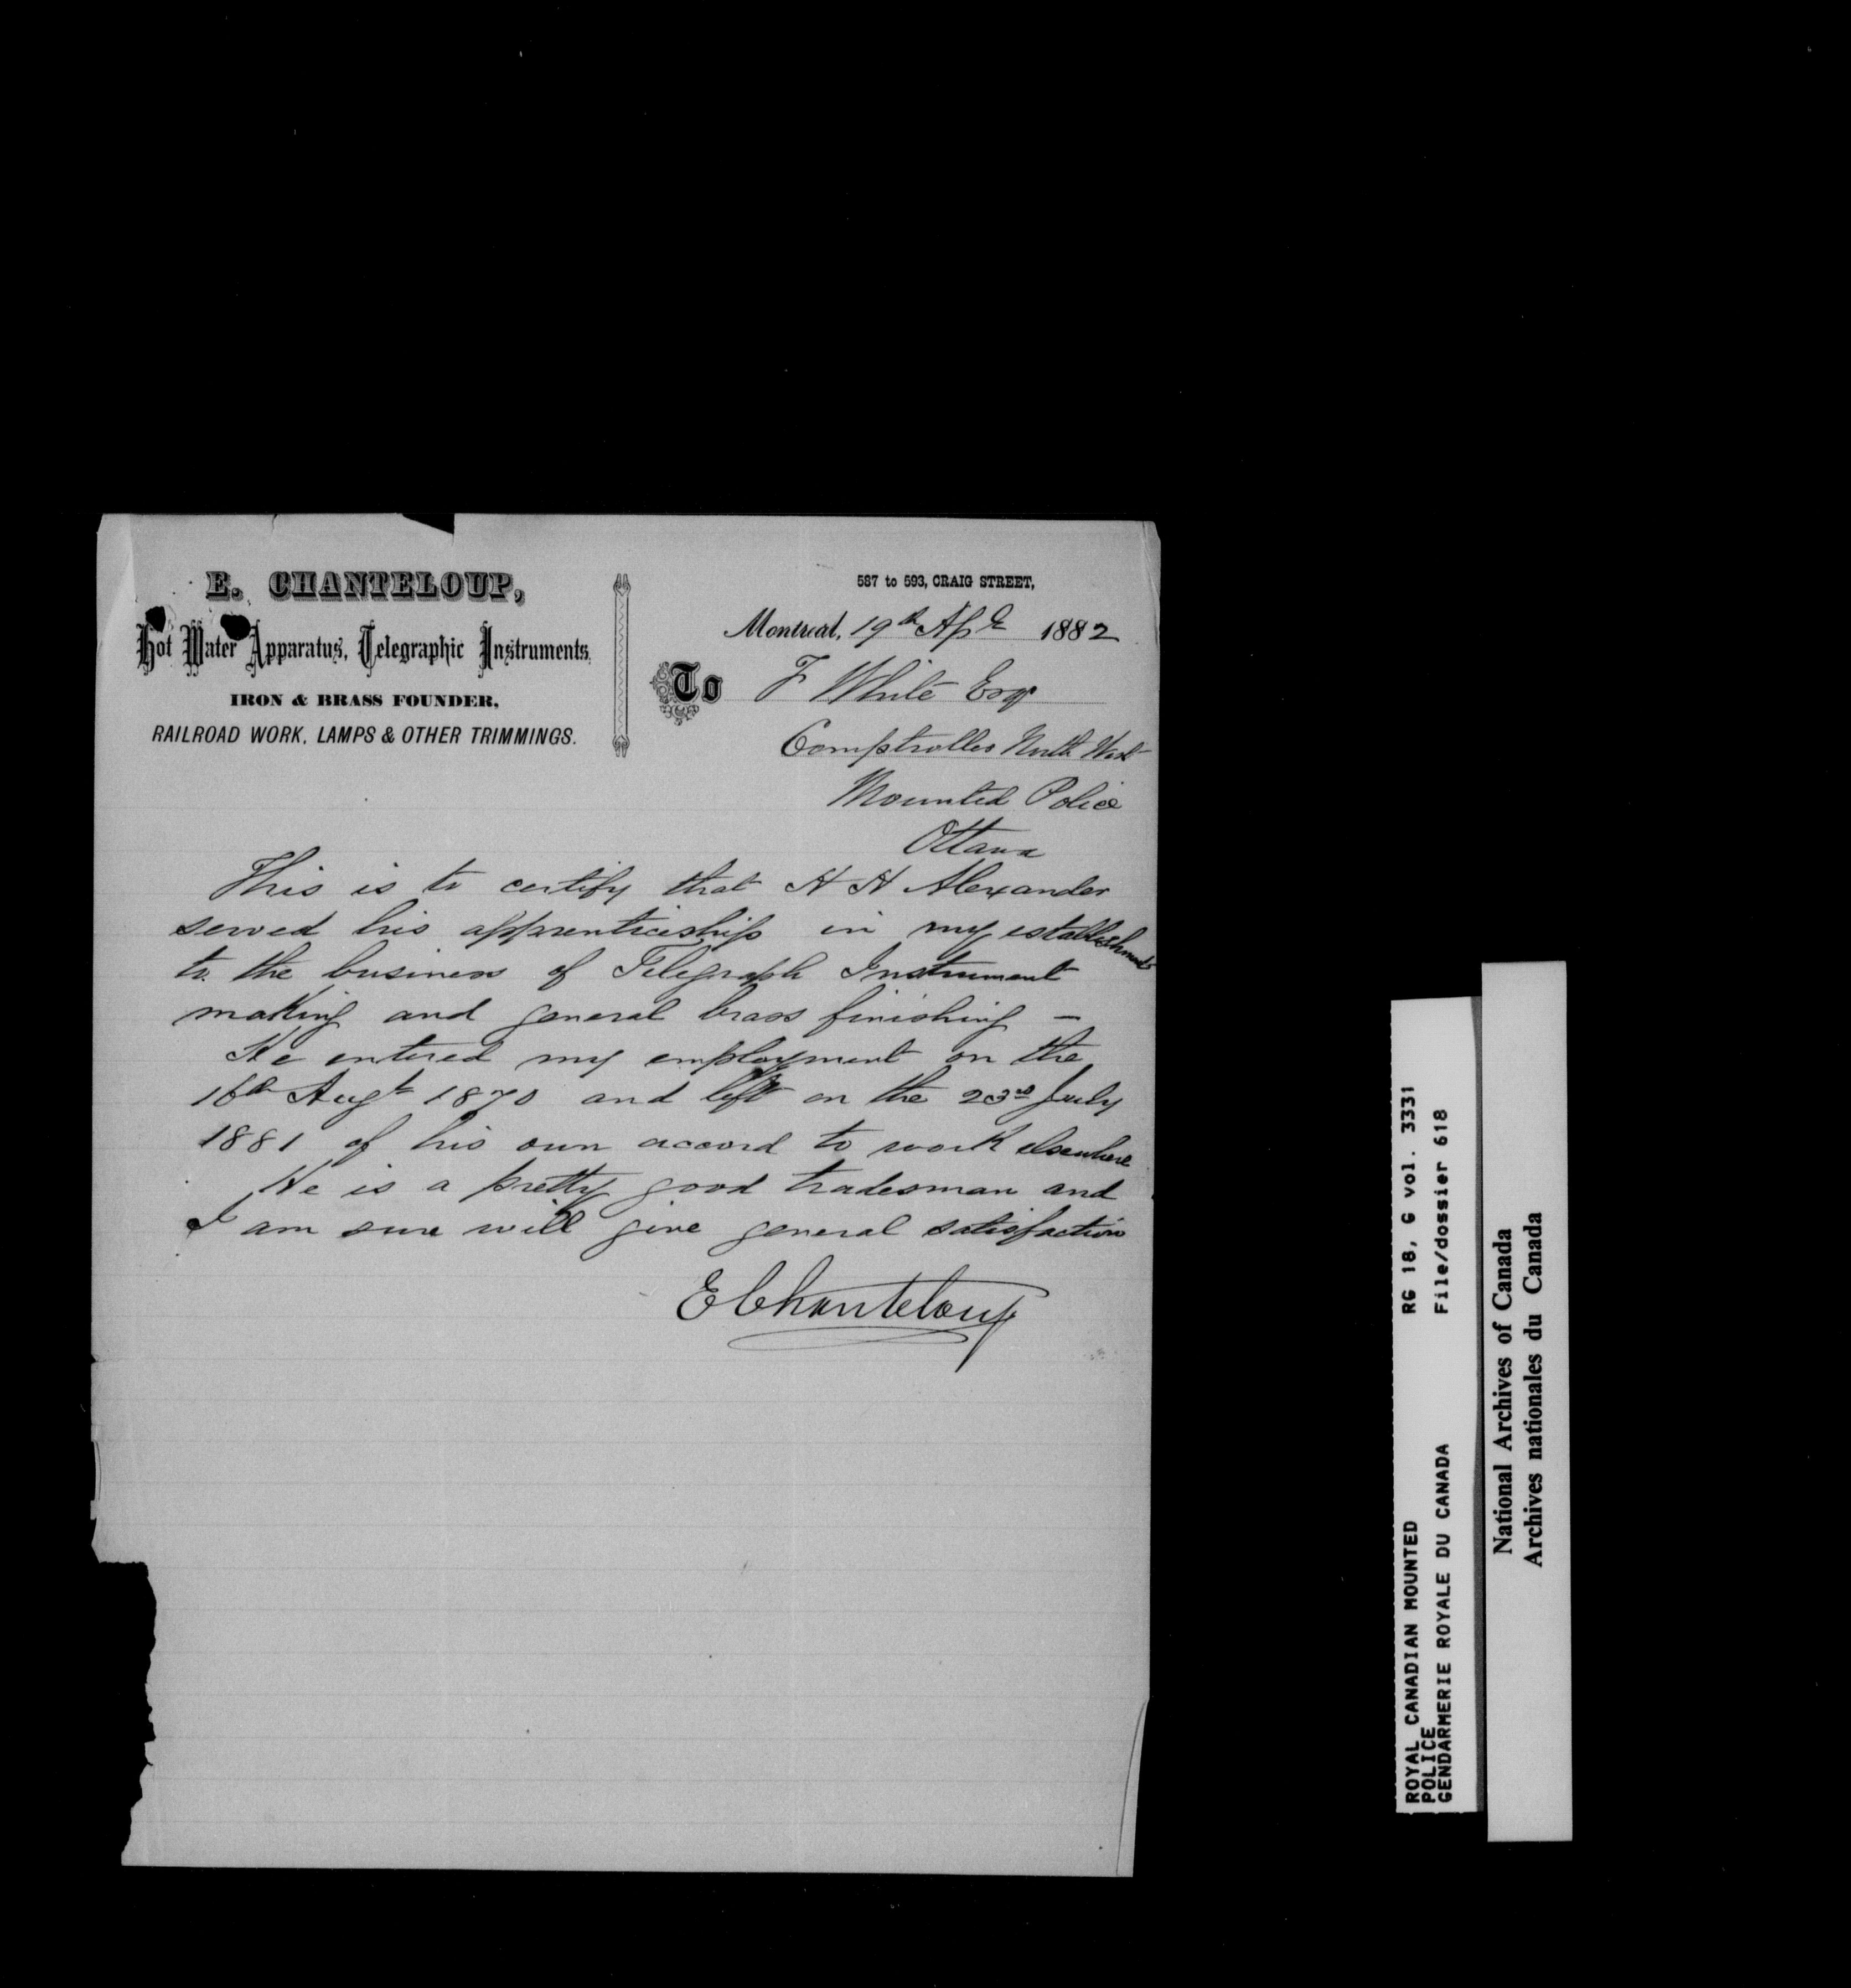 E. CHANTELOUP,
Hot Water Apparatus, Telegraphic Instruments,
IRON & BRASS FOUNDER,
RAILROAD WORK, LAMPS & OTHER TRIMMINGS.
587 to 593, CRAIG STREET,
Montreal, 19th Apl 1882
To F White Esqr
Comptroller North West
Mounted Police
Ottawa
This is to certify that H H Alexander
served his apprenticeship in my establishment
to the business of Telegraph Instrument
making and general brass finishing —
He entered my employment on the
16th Augt 1870 and left on the 23rd July
1881 of his own accord to work elsewhere
He is a pretty good tradesman and
I am sure will give general satisfaction
E Chanteloup
ROYAL CANADIAN MOUNTED RG 18, G vol. 3331
POLICE
GENDARMERIE ROYALE DU CANADA File/dossier 618
National Archives of Canada
Archives nationales du Canada